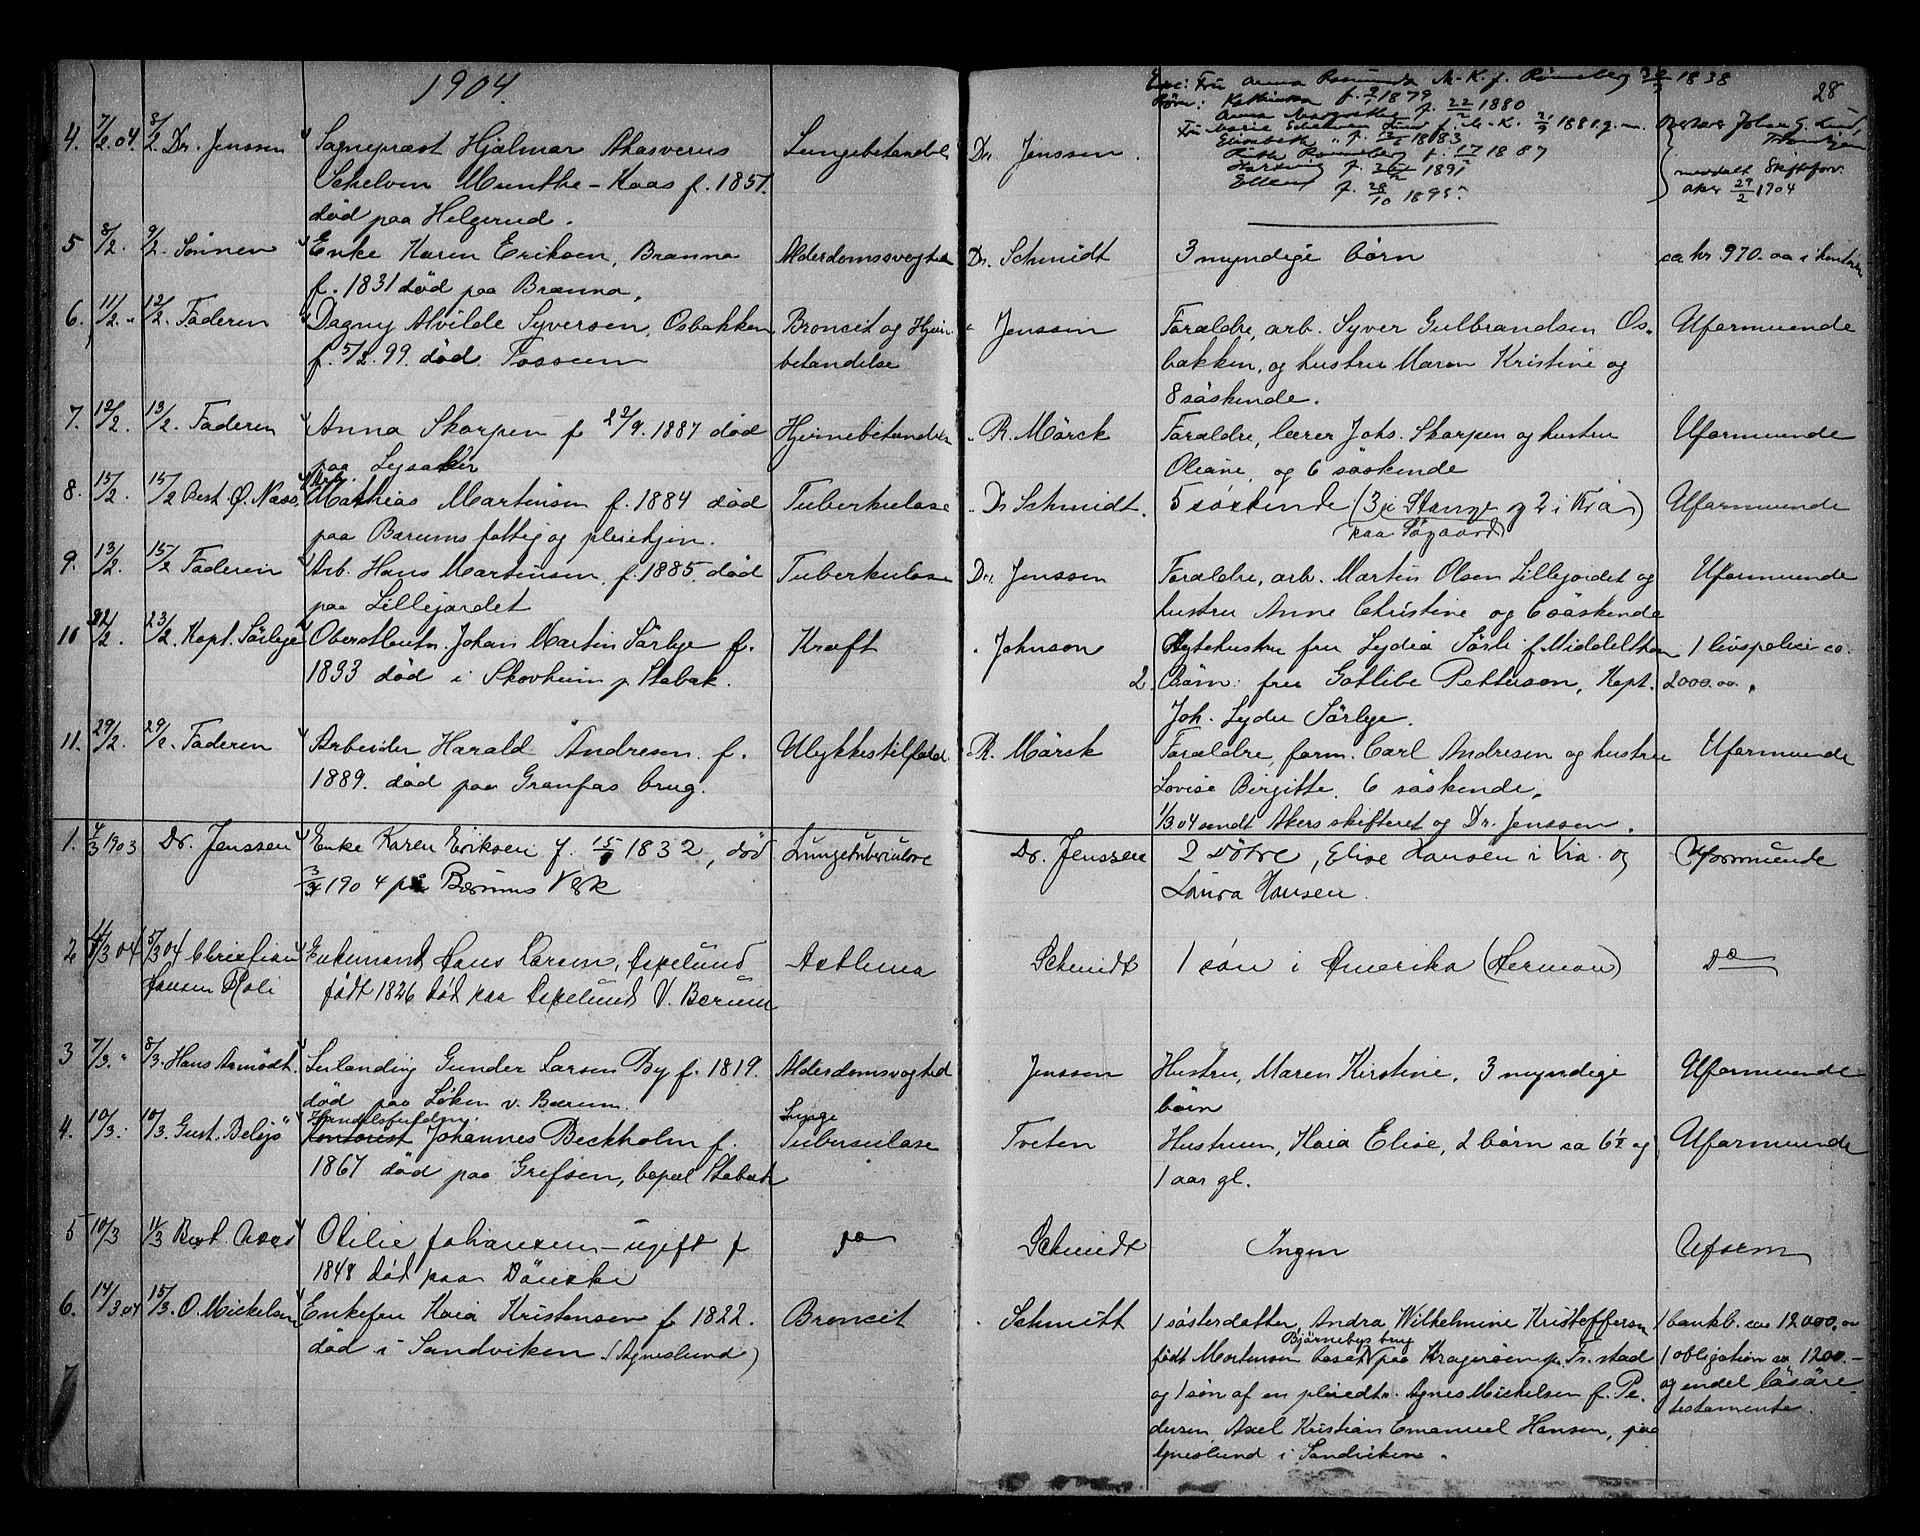 1904.
28
4. 7/2.04. 8/2. Dr. Jenssen Sognepræst Hjalmar Ahasverus Lungebetændel. Dr. Jenssen.
Schelven Munthe-Kaas f. 1851.
død paa Helgerud.
Enke: Fru Anna Rosamunda M-K. f. Rønneberg 1838
Børn: Kathinka f. 1879
Anna Margrethe f. 22/2 1880
Fru Marie Schelven Lund f. M-K. 1881 g. m. Johan G. Lund,
Elisabeth " f. 1883
Ruth Rønneberg f. 17 1887
f. 1891
Ellen f. 28/10 1895.
meddelt Skiftefor.
Aker 29/2 1904
5 8/2. 9/2. Sønnen Enke Karen Eriksen, Brænna Alderdomssvaghed Dr. Schmidt 3 myndige børn ca kr. 970.00 i
f. 1831 død paa Brænna,
6. 11/2. " 12/2. Faderen Dagny Alvilde Syversen, Osbakken Broncit og Hjerne- " Jenssen Forældre, arb. Syver Gulbrandsen Os- Uformuende
f. 5/2. 99. død. Fossum betændelse bakken, og hustru Maren Kristine og
8 søskende.
7. 12/2. 13/2. Faderen Anna Skorpen f 22/9. 1887 død Hjernebetændelse " R. Mørck Forældre, lærer Johs. Skorpen og hustru Uformuende
paa Lysaker Oleane, og 6 søskende
8. 15/2. 15/2 Best. Ø. Næss. Arb. Mathias Martinsen f. 1884 død Tuberkulose " Dr Schmidt. 5 søskende (3 i Stange og 2 i Kria) Uformuende
paa Bærums fattig og pleiehjem. paa Søgaard
9. 13/2. 15/2 Faderen Arb. Hans Martinsen. f. 1885. død Tuberkulose Dr. Jenssen Forældre, arb. Martin Olsen Lillejordet og Uformuende
paa Lillejordet hustru Anne Christine og 6 søskende
10 22/2. 23/2. Kapt. Sørlye Oberstløitn. Johan Martin Sørlye f. Kræft " Johnson Ægtehustru fru Lydia f. Middelthon 1 livspolice ca.
1833 død i Skovheim p. Stabæk. 2. Børn: fru Gotlibe Pettersen, Kapt. 2000.00.
Joh. Lyder Sørlye.
11. 29/2. 29/2. Faderen Arbeider Harald Andresen. f. Ulykkestilfælde. R. Mørck Forældre, form. Carl Andresen og hustru Uformuende
1889. død paa Granfos brug. Lovise Birgitte. 6 søskende,
1/3.04 sendt Akers skifteret og Dr. Jenssen.
1. 4/3 1903 Dr. Jenssen Enke Karen Eriksen f. 1832, død Lungetuberculose Dr. Jenssen 2 Døtre, Elise Hansen i Kria. og Uformuende
3/3 1904 på Bærums Værk Laura Hansen.
2 4/3 04 5/3 04 Christian Enkemand Hans Larsen, Espelund Asthma Schmidt 1 søn i Amerika (Herman) Do
Hansen Roli født 1826 død paa Espelund V. Bærum
3 7/3. " 8/3. Hans Armodt. Inlanding Gunder Larsen By f. 1819. Alderdomsvaghed Jenssen Hustru, Maren Kirstine, 3 myndige Uformuende
død paa Løken v. Bærum. børn
4. 10/3. 10/3. Gust. Belsjø Handelsfuldm. Kontorist Johannes Beckholm f. Lunge Tuberculose Tveten Hustruen, Kaia Elise, 2 børn ca 6½ og Uformuende
1867 død paa Grefsen, bopæl Stabæk 1 aar gl.
5 10/3 11/3 Best. Næss Otilie Johansen - ugift f Do Schmidt Ingen Uform
1848 død paa Dønski
6. 14/3 04 15/3. O. Mickelsen Enkefru Kaia Kristensen f 1822. Broncit " Schmitt 1 søsterdatter, Andra Wilhelmine Kristoffersen 1 bankb. ca 12000,00
død i Sandviken (Agneslund) født Mortensen bosat Bjørnebys brug paa Kragerøen pr. Fr. stad 1 obligation ca 1200.-
og 1 søn af en pleiedtr. Agnes Mickelsen f. Pe- og endel løsøre
dersen, Axel Kristian Emanuel Hansen, paa testamente.
Agneslund i Sandviken.
7